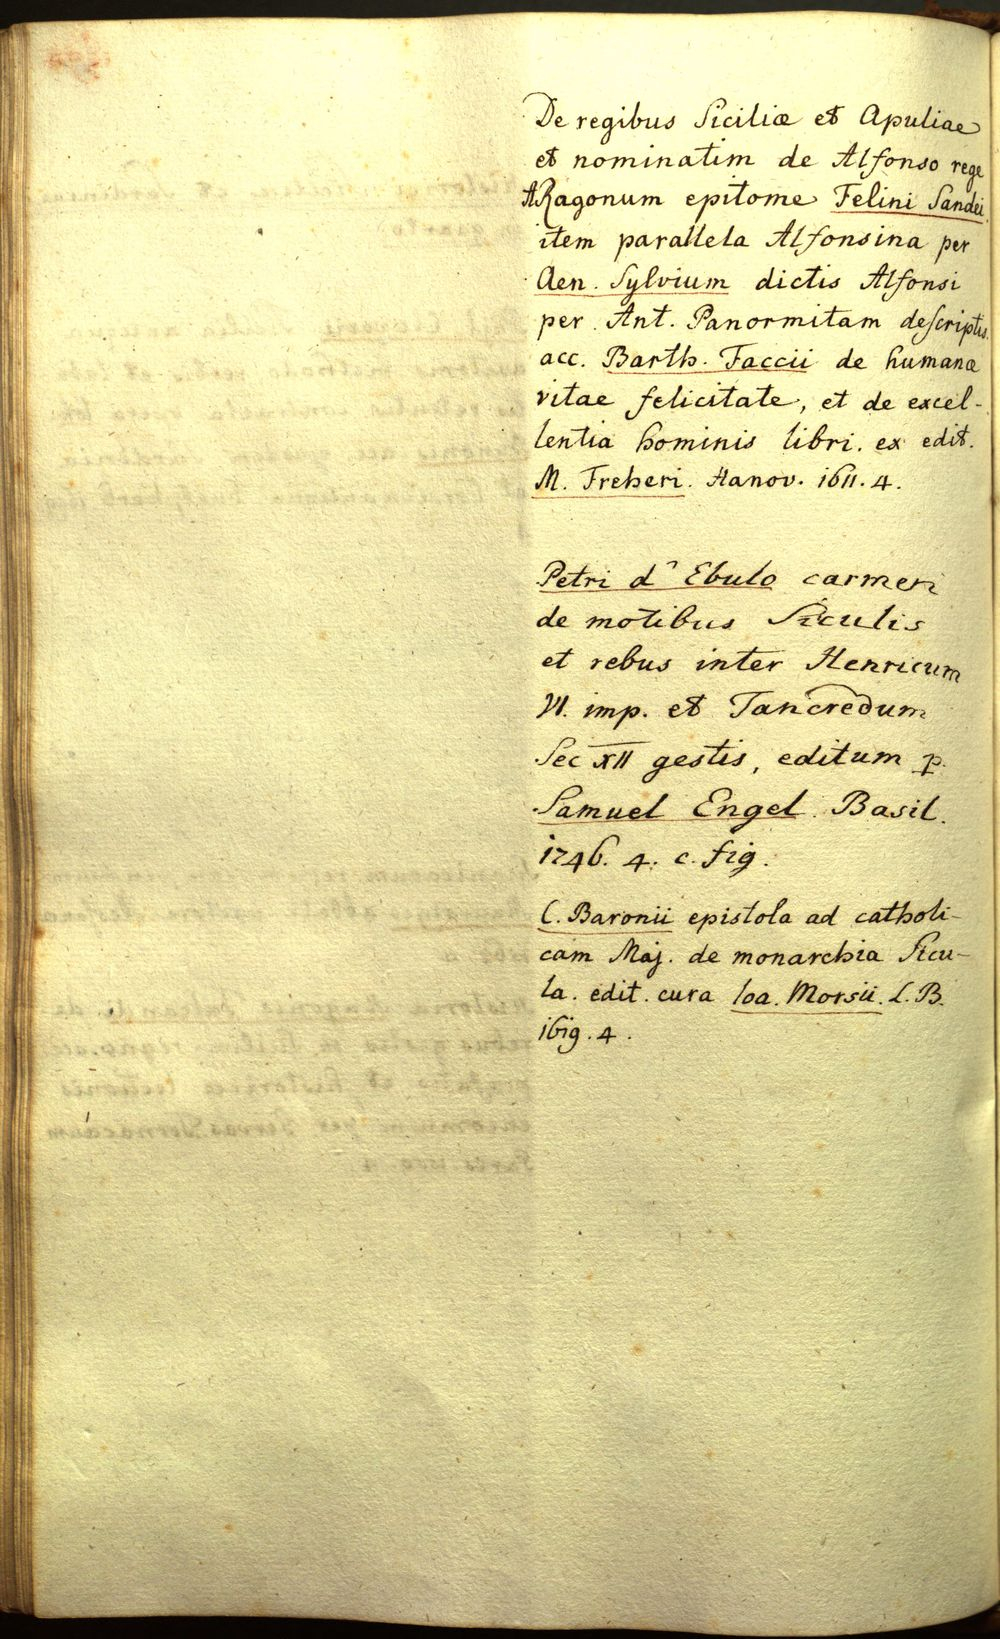 De regibus Siciliæ et Apuliae
et nominatim de Alfonso rege
ARagonum epitome Felini Sandei.
item parallela Alfonsina per
Aen. Sylvium dictis Alfonsi
per Ant. Panormitam descriptis.
acc. Barth. Faccii de humanæ
vitae felicitate, et de excel-
lentia hominis libri. ex edit.
M. Freheri. Hanov. 1611. 4.
Petri d'Ebulo carmen
de motibus Siculis
et rebus inter Henricum
VI. imp. et Tancredum
Sec XII gestis, editum p.
Samuel Engel. Basil.
1746. 4. c. fig.
C. Baronii epistola ad catholi-
cam Maj. de monarchia Sicu-
la. edit. cura Ioa. Morsii. L. B.
1619. 4.